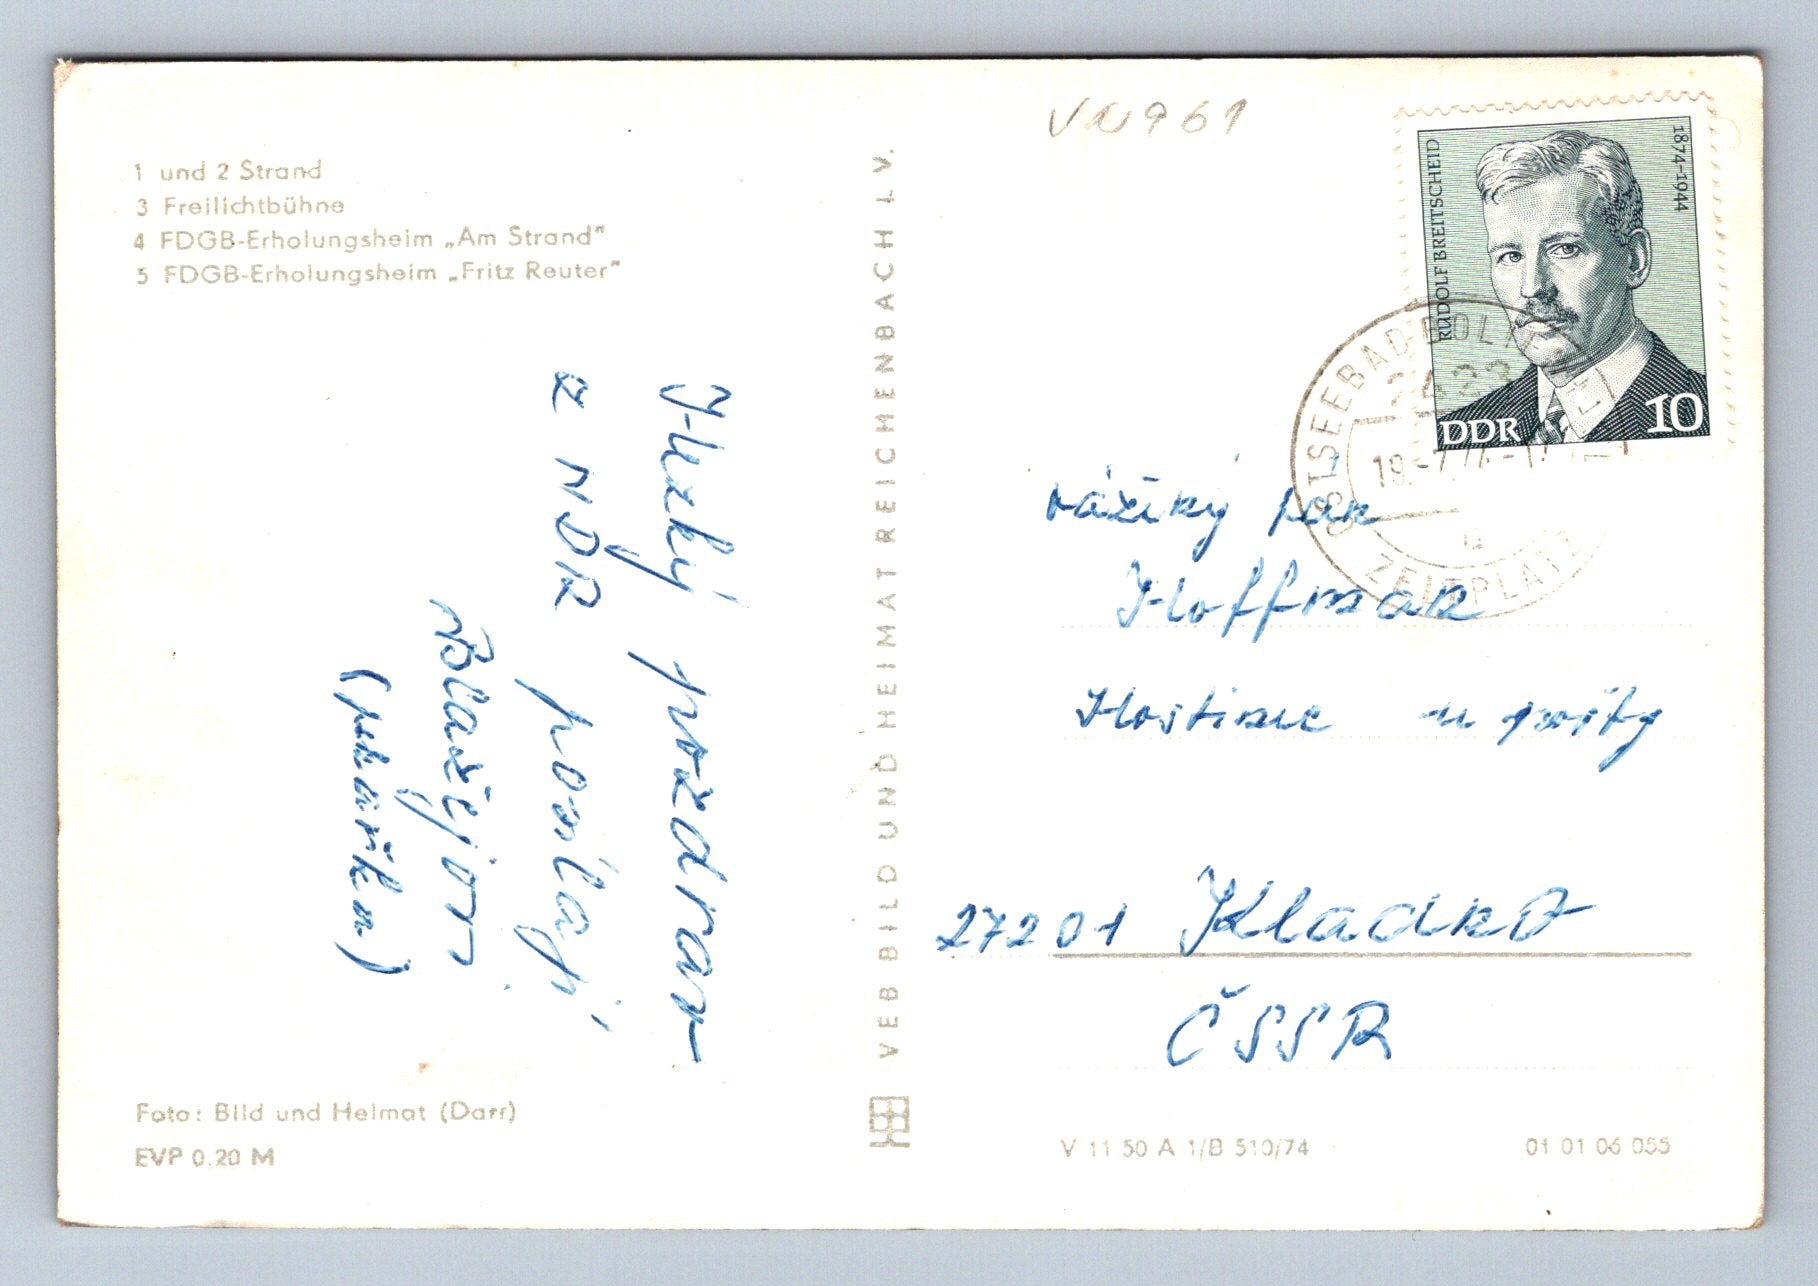 1 und 2 Strand
3 Freilichtbühne
4 FDGB-Erholungsheim „Am Strand"
5 FDGB-Erholungsheim „Fritz Reuter"
Hezký pozdrav
z NDR posílají
Blažejovi
(pekařka)
Foto: Bild und Heimat (Darr)
EVP 0.20 M
VEB BILD UND HEIMAT REICHENBACH I. V.
VN961
RUDOLF BREITSCHEID
1874-1944
DDR 10
OSTSEEBAD
ZELTPLATZ
vážený pán
Hoffman
Hostinec u pošty
27201 Kladno
ČSSR
V 11 50 A 1/B 510/74
01 01 06 055